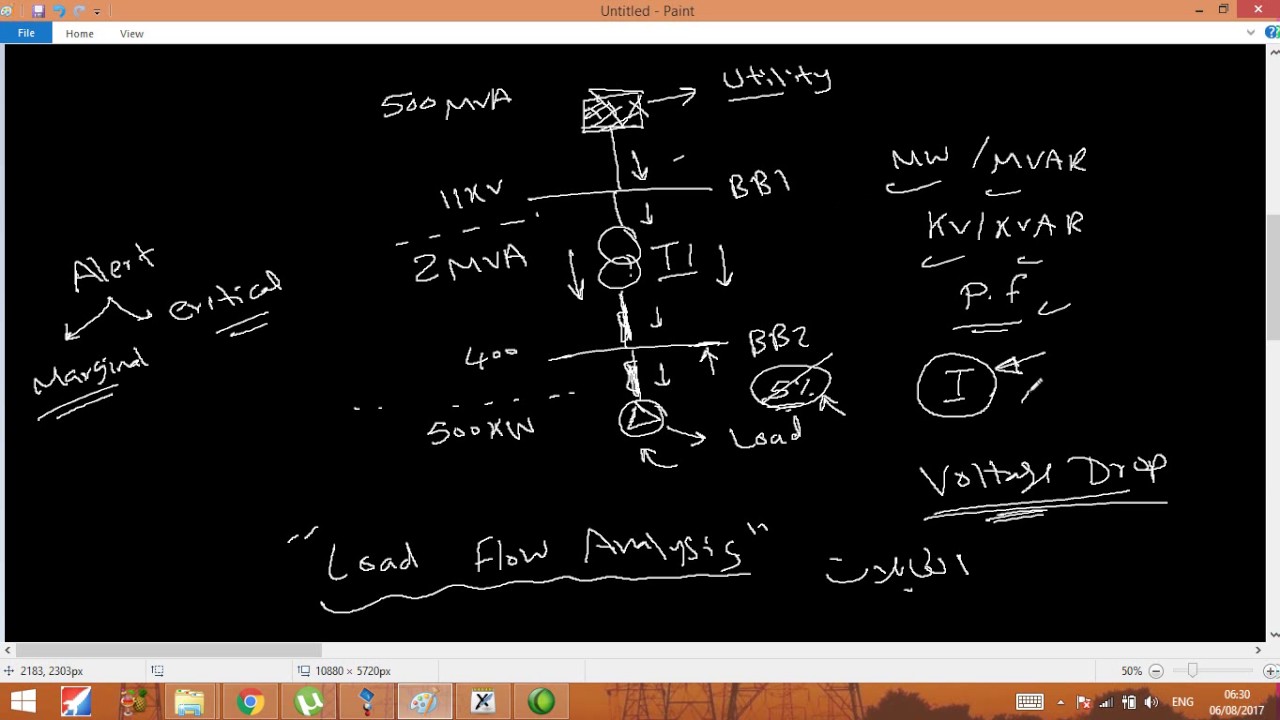 Untitled - Paint
File Home View
500 MVA
Utility
11KV
BB1
MW / MVAR
2 MVA
T1
KV / KVAR
Alert
Critical
Marginal
P.f
400
BB2
5%
I
500KW
Load
Voltage Drop
"Load Flow Analysis"
2183, 2303px
10880 × 5720px
50%
ENG
06:30
06/08/2017